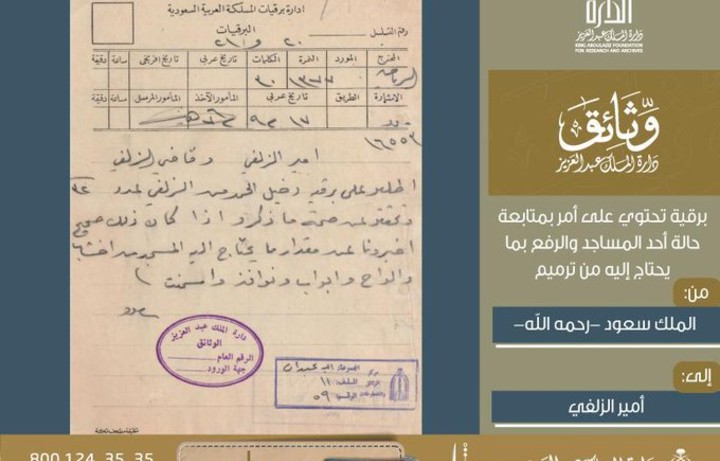 ادارة برقيات المملكة العربية السعودية
البرقيات
رقم التسلسل
المخرج المورد النمرة الكلمات تاريخ عربي تاريخ افرنجي ساعة دقيقة
الرياض ١٣٧٧ ٣٠
الاشارة الطريق تاريخ عربي المأمور الآخذ المأمور المرسل ساعة دقيقة
١٧ ٣ ٩
١٦٥٥٣
امير الزلفي وقاضي الزلفي
اطلعوا على برقية دخيل الحمد من الزلفي لعدد ٤٢
وتحققوا عن صحة ما ذكر و اذا كان ذلك صحيح
اخبرونا عن مقدار ما يحتاج اليه المسجد من اخشاب
والواح وابواب ونوافذ واسمنت
سعود
دارة الملك عبد العزيز
الوثائق
الرقم العام
جهة الورود
مركز
١١
٥٩
الدارة
دارة الملك عبد العزيز
KING ABDULAZIZ FOUNDATION
FOR RESEARCH AND ARCHIVES
وثائق
دارة الملك عبد العزيز
برقية تحتوي على أمر بمتابعة
حالة أحد المساجد والرفع بما
يحتاج إليه من ترميم
من:
الملك سعود -رحمه الله-
إلى:
أمير الزلفي
800 124 35 35